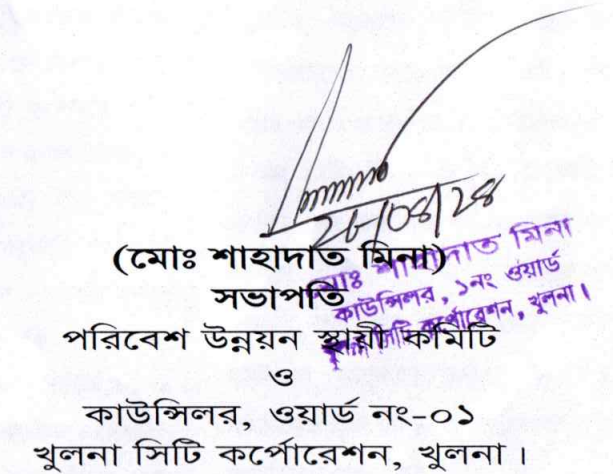 (মোঃ শাহাদাত মিনা)
সভাপতি
পরিবেশ উন্নয়ন স্থায়ী কমিটি
ও
কাউন্সিলর, ওয়ার্ড নং-০১
খুলনা সিটি কর্পোরেশন, খুলনা।
মোঃ শাহাদাত মিনা
কাউন্সিলর, ১নং ওয়ার্ড
সিটি কর্পোরেশন, খুলনা।